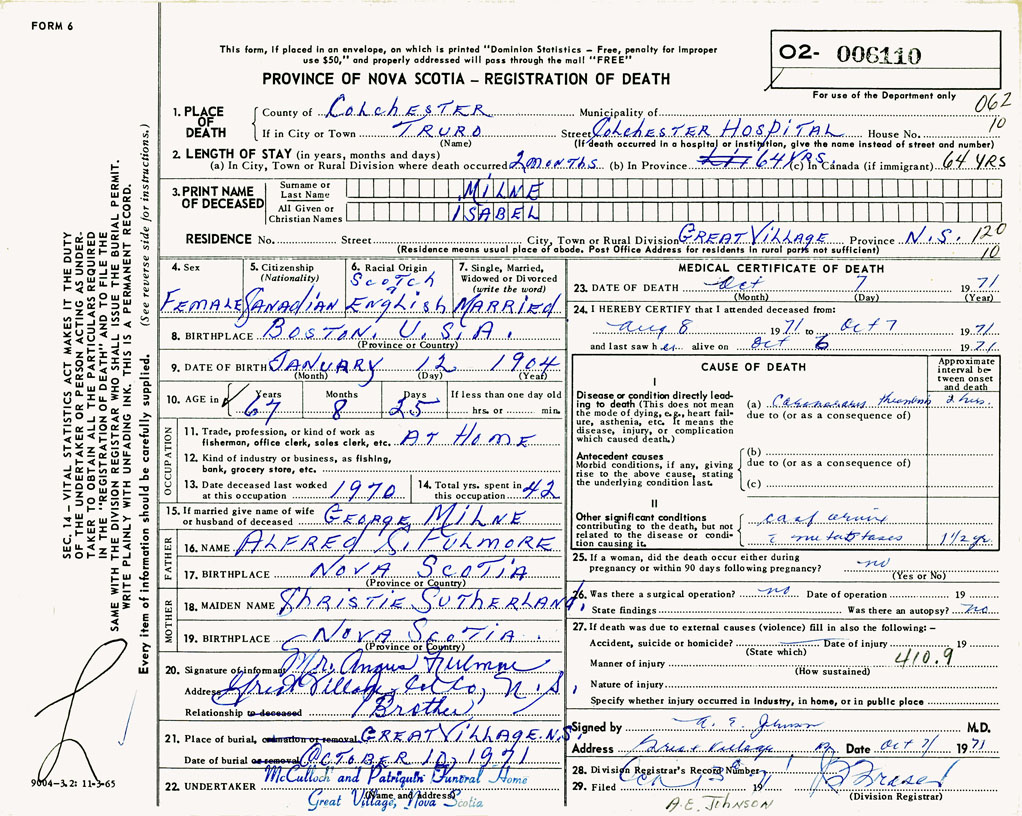 FORM 6
This form, if placed in an envelope, on which is printed "Dominion Statistics – Free, penalty for improper
use $50," and properly addressed will pass through the mail "FREE"
PROVINCE OF NOVA SCOTIA – REGISTRATION OF DEATH
02- 006110
For use of the Department only
062
10
1. PLACE OF DEATH County of COLCHESTER Municipality of
If in City or Town TRURO Street COLCHESTER HOSPITAL House No.
(Name) (If death occurred in a hospital or institution, give the name instead of street and number)
2. LENGTH OF STAY (in years, months and days)
(a) In City, Town or Rural Division where death occurred 2 MONTHS (b) In Province 64 YRS. (c) In Canada (if immigrant) 64 YRS
3. PRINT NAME OF DECEASED Surname or Last Name MILNE
All Given or Christian Names ISABEL
RESIDENCE No. Street City, Town or Rural Division GREAT VILLAGE Province N.S. 120
10
(Residence means usual place of abode. Post Office Address for residents in rural parts not sufficient)
4. Sex FEMALE
5. Citizenship (Nationality) CANADIAN
6. Racial Origin SCOTCH ENGLISH
7. Single, Married, Widowed or Divorced (write the word) MARRIED
8. BIRTHPLACE BOSTON, U.S.A.
(Province or Country)
9. DATE OF BIRTH JANUARY 12 1904
(Month) (Day) (Year)
10. AGE in Years 67 Months 8 Days 25 If less than one day old
hrs. or min.
OCCUPATION
11. Trade, profession, or kind of work as fisherman, office clerk, sales clerk, etc. AT HOME
12. Kind of industry or business, as fishing, bank, grocery store, etc.
13. Date deceased last worked at this occupation 1970
14. Total yrs. spent in this occupation 42
15. If married give name of wife or husband of deceased GEORGE MILNE
FATHER
16. NAME ALFRED S. FULMORE
17. BIRTHPLACE NOVA SCOTIA
(Province or Country)
MOTHER
18. MAIDEN NAME CHRISTIE SUTHERLAND
19. BIRTHPLACE NOVA SCOTIA
(Province or Country)
20. Signature of informant Mr. Angus Fulmore
Address Great Village, Col Co, N.S.
Relationship to deceased Brother
21. Place of burial, cremation or removal GREAT VILLAGE N.S.
Date of burial or removal OCTOBER 10, 1971
22. UNDERTAKER McCulloch and Patriquin Funeral Home
(Name and Address)
Great Village, Nova Scotia
MEDICAL CERTIFICATE OF DEATH
23. DATE OF DEATH Oct 7 1971
(Month) (Day) (Year)
24. I HEREBY CERTIFY that I attended deceased from:
Aug 8 1971 to Oct 7 1971
and last saw her alive on Oct 6 1971
CAUSE OF DEATH
Approximate interval between onset and death
I
Disease or condition directly leading to death (This does not mean the mode of dying, e.g., heart failure, asthenia, etc. It means the disease, injury, or complication which caused death.)
(a) Coronary thrombosis 2 hrs.
due to (or as a consequence of)
Antecedent causes
Morbid conditions, if any, giving rise to the above cause, stating the underlying condition last.
(b)
due to (or as a consequence of)
(c)
II
Other significant conditions contributing to the death, but not related to the disease or condition causing it.
ca of
metastases 1 1/2 yr.
25. If a woman, did the death occur either during pregnancy or within 90 days following pregnancy? no
(Yes or No)
26. Was there a surgical operation? no Date of operation 19
State findings Was there an autopsy? no
27. If death was due to external causes (violence) fill in also the following: –
Accident, suicide or homicide? Date of injury 19
(State which)
410.9
Manner of injury
(How sustained)
Nature of injury
Specify whether injury occurred in industry, in home, or in public place
Signed by A. E. Johnson M.D.
Address Great Village Date Oct 7/ 1971
28. Division Registrar's Record Number
29. Filed Oct 19
(Division Registrar)
A.E. JOHNSON
SEC. 14 – VITAL STATISTICS ACT MAKES IT THE DUTY
OF THE UNDERTAKER OR PERSON ACTING AS UNDER-
TAKER TO OBTAIN ALL THE PARTICULARS REQUIRED
IN THE "REGISTRATION OF DEATH" AND TO FILE THE
SAME WITH THE DIVISION REGISTRAR WHO SHALL ISSUE THE BURIAL PERMIT.
WRITE PLAINLY WITH UNFADING INK. THIS IS A PERMANENT RECORD.
Every item of information should be carefully supplied. (See reverse side for instructions.)
9004–3.2: 11-3-65